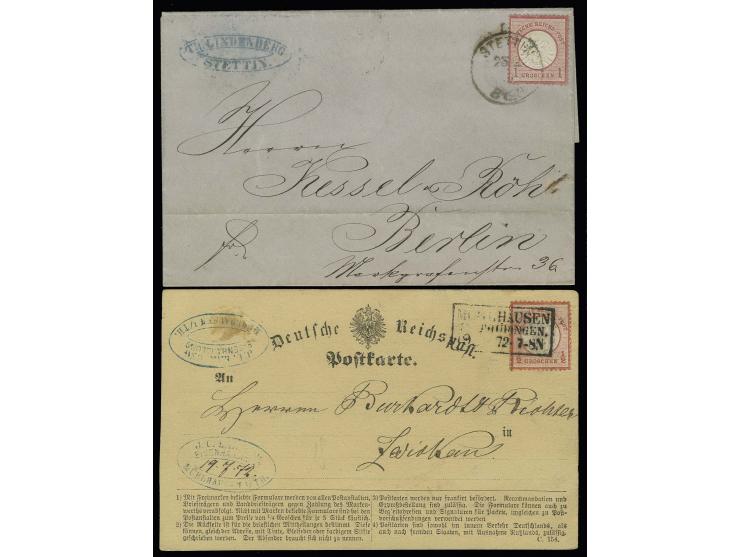 TH. LINDENBERG
STETTIN.
STETTIN
DEUTSCHE REICHS-POST
1 GROSCHEN 1
Herren
Kessel & Röhl
Berlin
fr.
Markgrafenstr. 36
Deutsche Reichs-Post.
Postkarte.
MÜHLHAUSEN
THÜRINGEN,
72 7-8N
½ GROSCHEN ½
An
Herren Burkhardt & Richter
in
Zwickau
19.7.72.
1) Mit Formularen beliebte Formulare werden von allen Postanstalten,
Briefträgern und Landbriefträgern gegen Zahlung des Marken-
werths verabfolgt. Nicht mit Marken beklebte Formulare sind bei den
Postanstalten zum Preise von ¼ Groschen für je 5 Stück käuflich.
2) Die Rückseite ist für die brieflichen Mittheilungen bestimmt. Diese
können, gleich der Adresse, mit Tinte, Bleifeder oder farbigem Stifte
geschrieben werden. Der Absender braucht sich nicht zu nennen.
3) Postkarten werden nur frankirt befördert. Recommandation und
Expreßbestellung sind zulässig. Die Formulare können auch zu
Begleitadressen und Signaturen für Packete, ingleichen zu Post-
vorschußsendungen verwendet werden
4) Postkarten sind sowohl im innern Verkehr Deutschlands, als
auch nach fremden Staaten, mit Ausnahme Rußlands, zulässig.
C. 154.